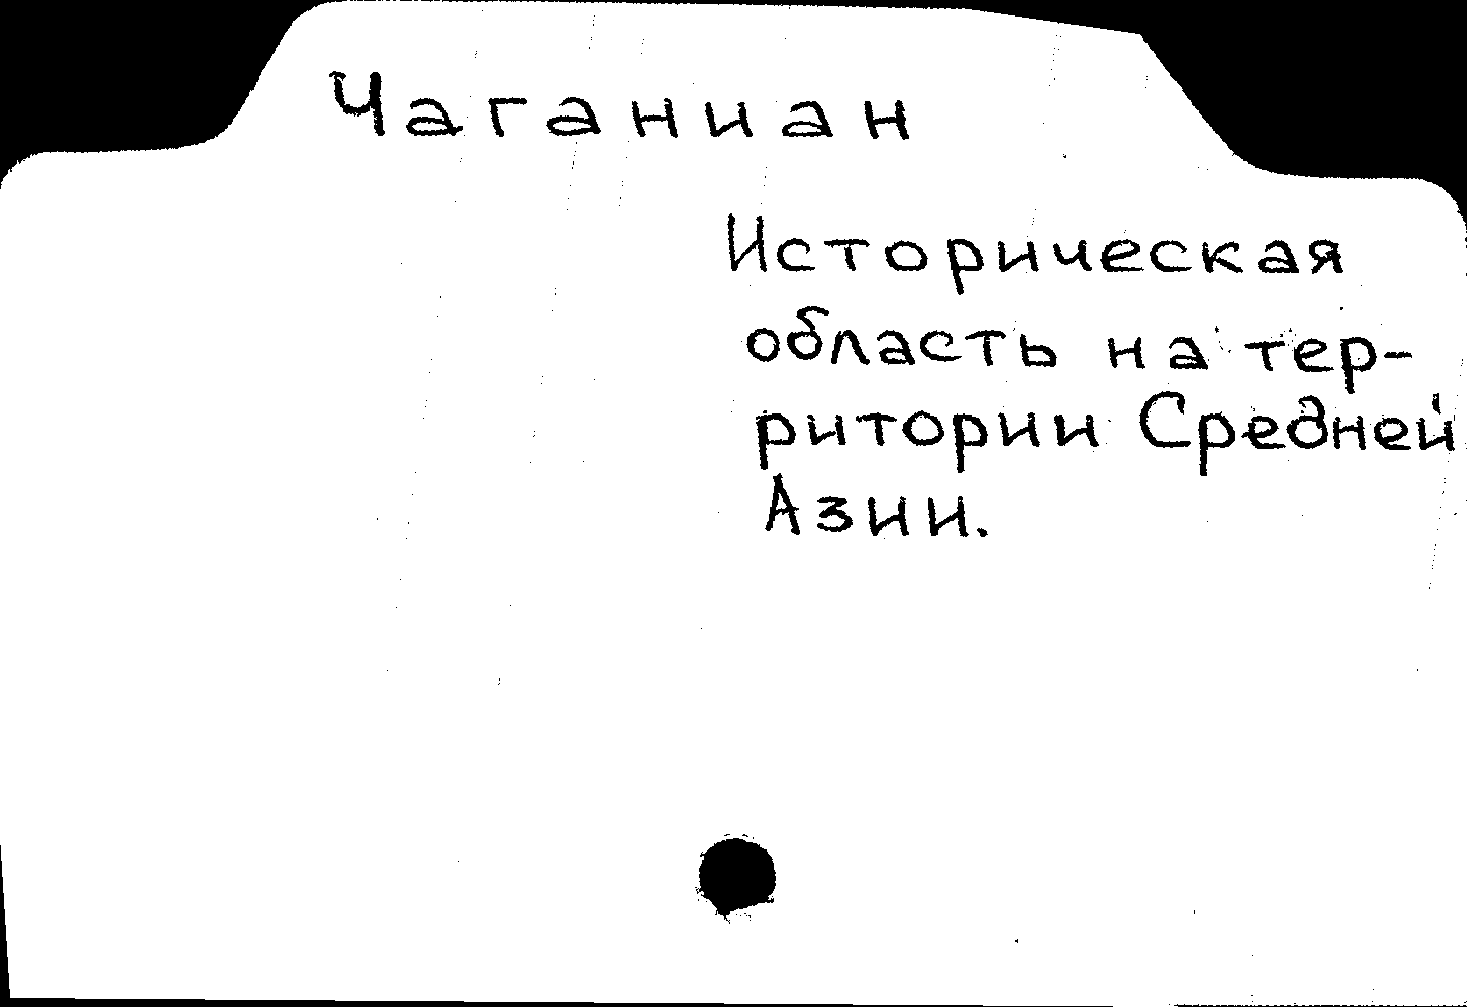 Чаганиан
Историческая
область на тер-
ритории Средней
Азии.